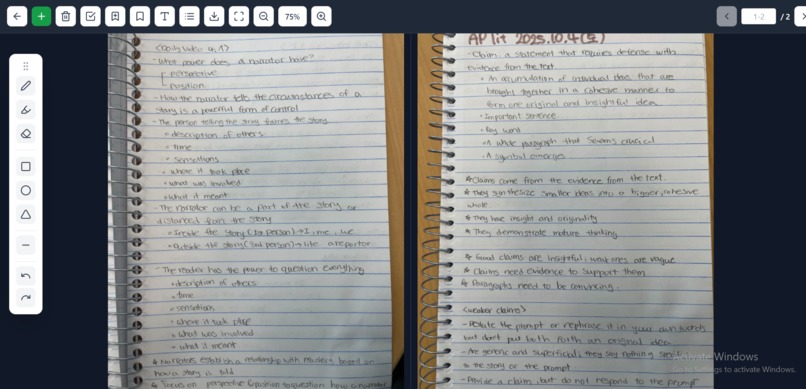 75%
1-2 / 2
<Daily Video 4.1>
- What power does a narrator have?
perspective
position
- How the narrator tells the circumstances of a
story is a powerful form of control
- The person telling the story frames the story
description of others
time
sensations
where it took place
what was involved
what it meant
- The narrator can be a part of the story or
distanced from the story
Inside the story (1st person) → I, me, we
Outside the story (3rd person) → like a reporter
- The reader has the power to question everything
description of others
time
sensations
where it took place
what was involved
what it meant
Narrators establish a relationship with readers based on
how a story is told
Focus on perspective & position to question how a narrator
AP lit 2025.10.4(토)
- Claim: a statement that requires defense with
evidence from the text
An accumulation of individual ideas that are
brought together in a cohesive manner to
form one original and insightful idea
Important sentence
key word
A whole paragraph that seems crucial
A symbol emerges
Claims come from the evidence from the text.
They synthesize smaller ideas into a bigger, cohesive
whole.
They have insight and originality
They demonstrate mature thinking
Good claims are insightful; weak ones are vague
Claims need evidence to support them
Paragraphs need to be convincing.
<weaker claims>
- Restate the prompt or rephrase it in your own words
but don't put forth an original idea
- Are generic and superficial; they say nothing specific
to the story or the prompt
- Provide a claim, but do not respond to the prompt
Activate Windows
Go to Settings to activate Windows.